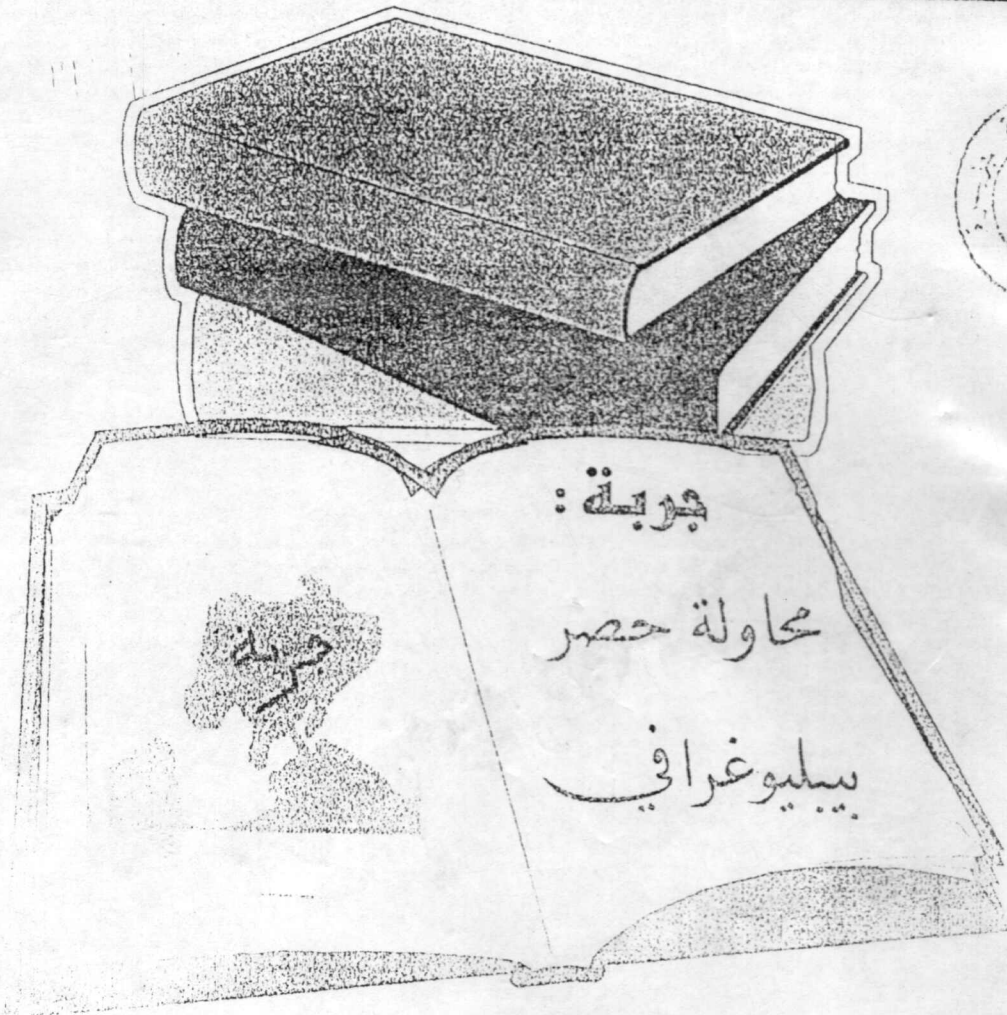 جربة :
محاولة حصر
بيبليوغرافي
جربة